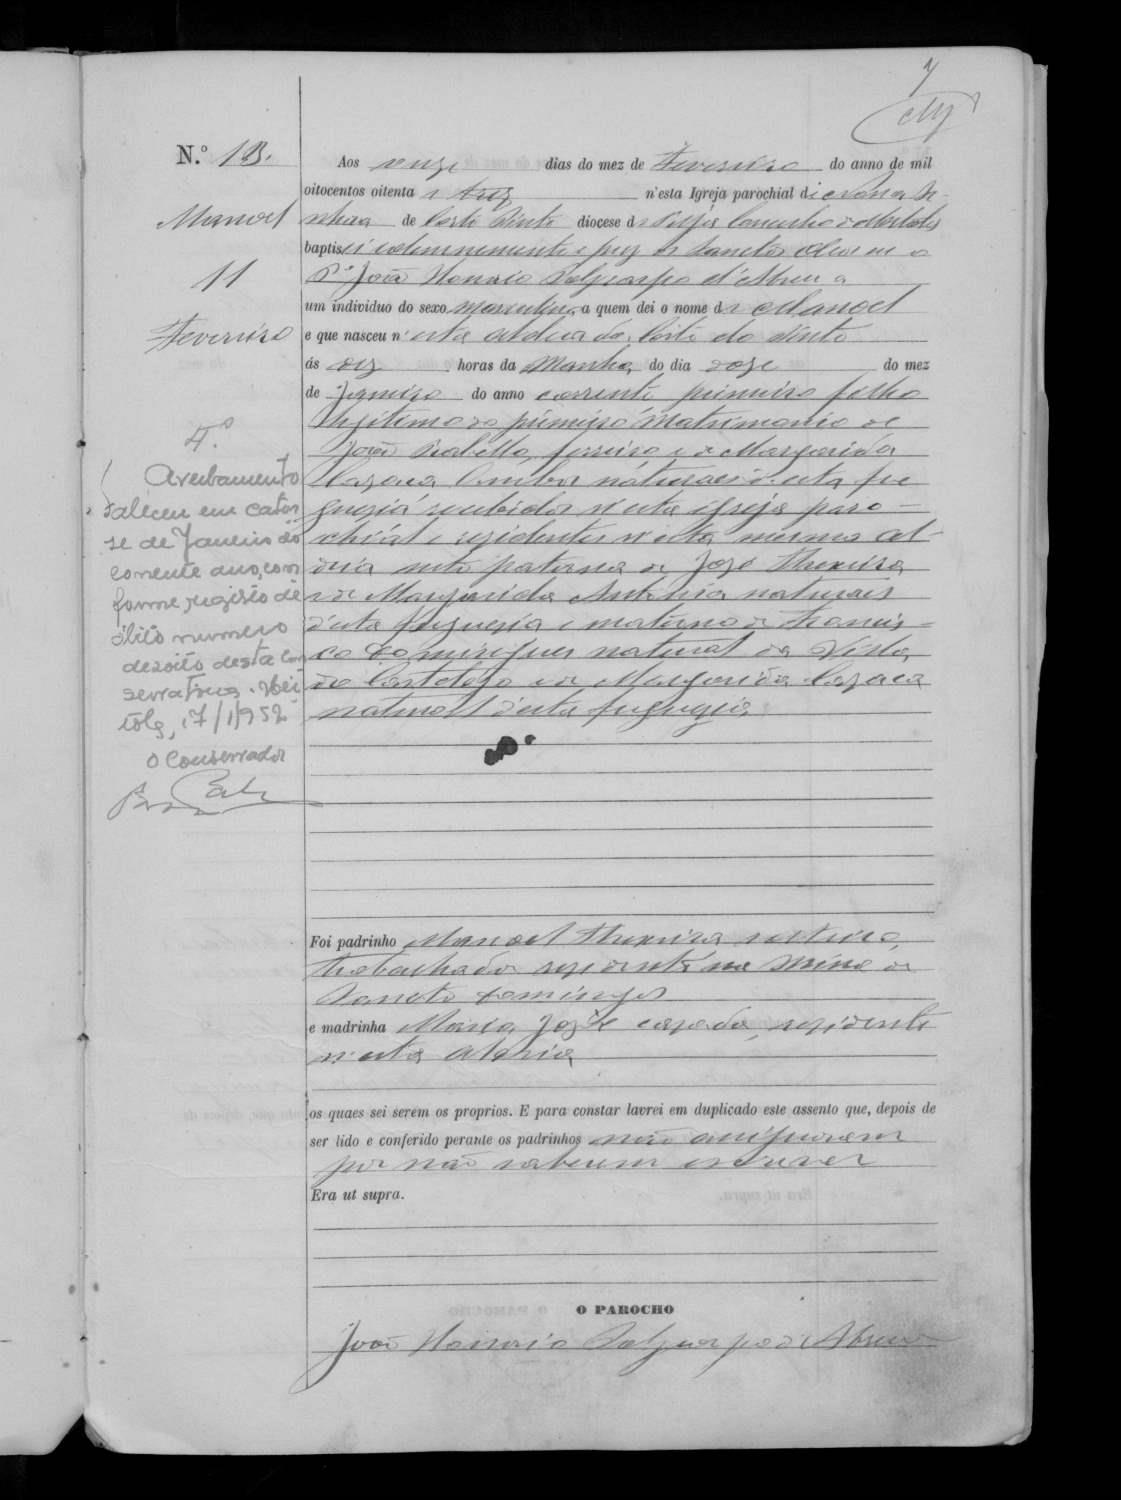 7
N.º 13.
Manoel
11
Fevereiro
Aos onze dias do mez de Fevereiro do anno de mil
oitocentos oitenta e tres n'esta Igreja parochial de Sanna
de Corte Pinto diocese de Beja Concelho de Mertola
baptisei solemnemente e puz os Sanctos Oleos eu o
P.e João Honorio Salgueiro d'Abreu a
um individuo do sexo masculino, a quem dei o nome de Manoel
e que nasceu n'esta aldeia da Corte do Pinto
ás dez horas da Manhã, do dia doze do mez
de Janeiro do anno corrente primeiro filho
legitimo do primeiro Matrimonio de
João ferreiro e de Margarida
ambos naturaes d'esta fre
guezia recebidos n'esta igreja paro-
chial e rezidentes n'esta mesma al-
deia neto paterno de José Theixeira
e de Margarida Antonia naturaes
d'esta freguezia e materno de Francis-
co Domingues natural da
do e de Margarida
natural d'esta freguezia.
4.º
Averbamento
Faleceu em cator
se de Janeiro do
corrente ano, con
forme registo de
óbito numero
dezoito desta Con
servatoria. Mér
tola, 17/1/952
O Conservador
Foi padrinho Manoel Theixeira solteiro,
trabalhador rezidente na Mina de
Sancto Domingos
e madrinha Maria José cazada, rezidente
n'esta aldeia
os quaes sei serem os proprios. E para constar lavrei em duplicado este assento que, depois de
ser lido e conferido perante os padrinhos não assignaram
por não saberem escrever
Era ut supra.
O PAROCHO
João Honorio d'Abreu